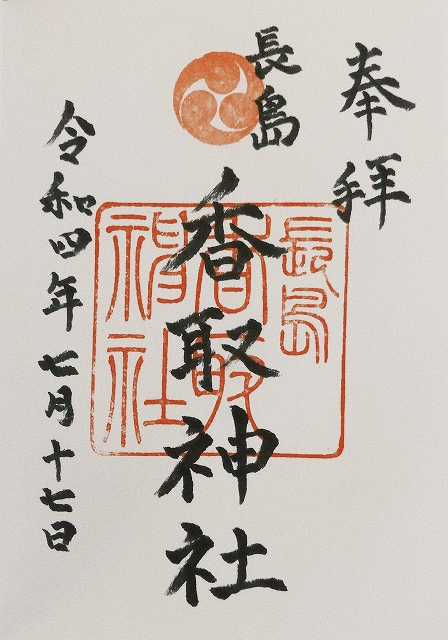 奉拝
長島
香取神社
長島
香取
神社
令和四年七月十七日